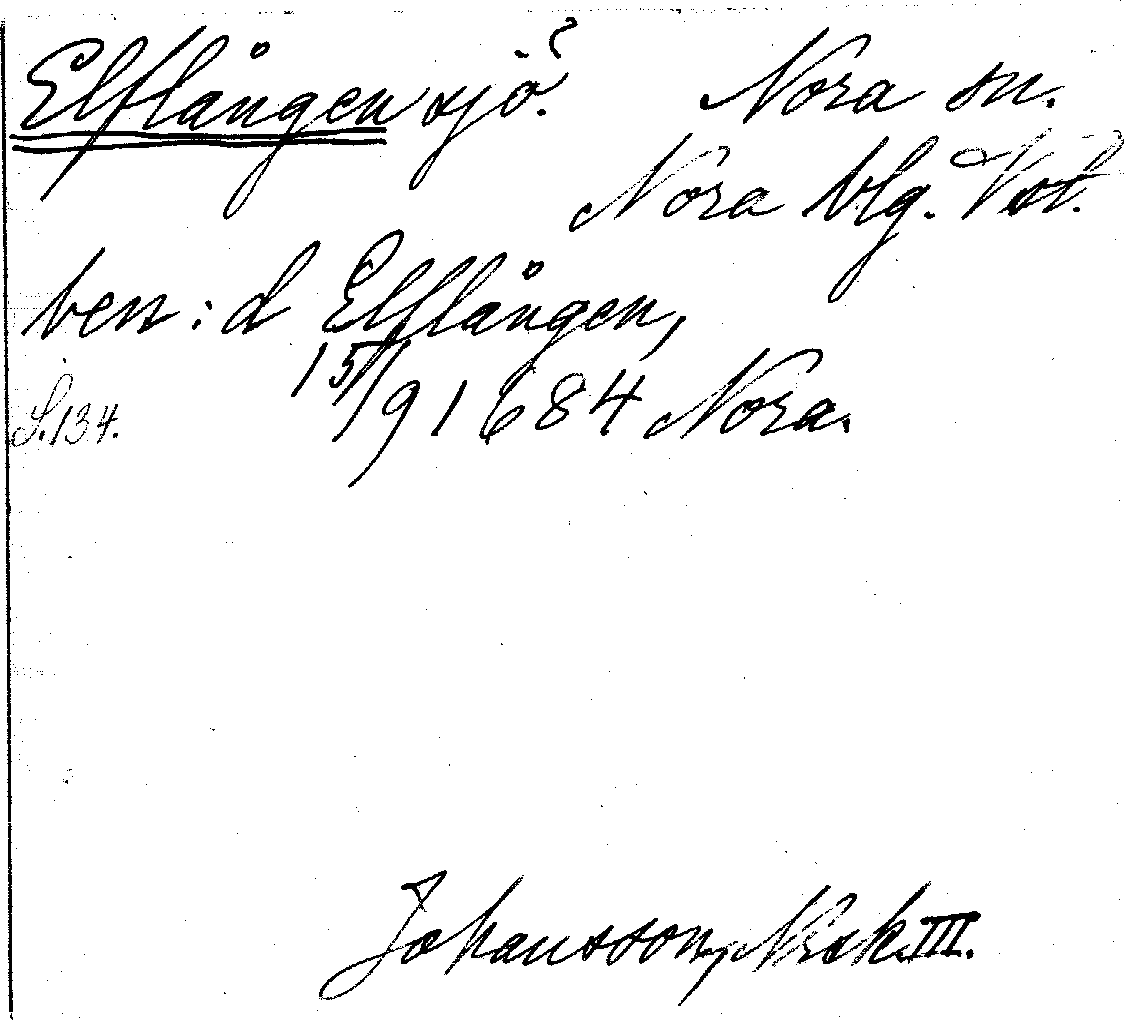 Elflången sjö.?
Nora sn.
Nora blg. Vst.
ben: d Elflången,
15/9 1684 Nora.
S. 134.
Johansson, Nrsk. III.